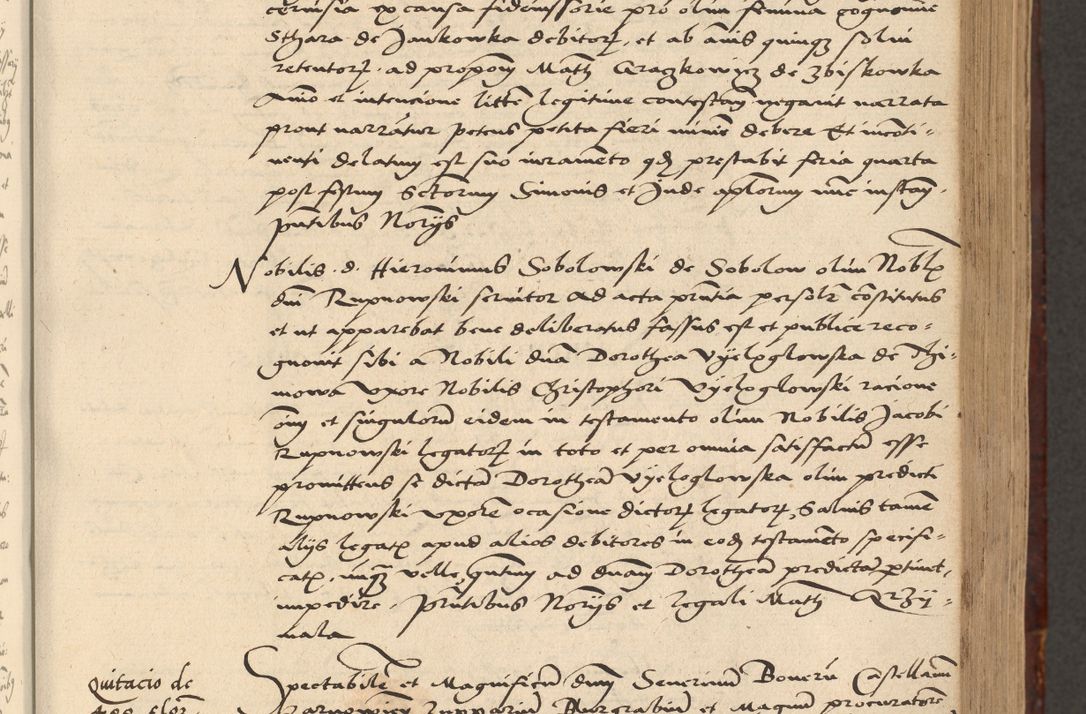 cerevisia ex causa fideiussorie pro olim femina cognomine
Sthara de Jankowka debitorum, et ab annis quinque solui
retentorum, ad propositionem Math Graczkowicz de Zbiskowka
animo et intencione litem legitime contestandi negavit narrata
prout narrantur petens petita fieri minime debere Et inconti-
nenti delatum est suo iuramento quod prestabit feria quarta
post festum Sctorum Simonis et Jude aplorum nunc instan.
pntibus Norijs
Nobilis d. Hieronimus Sobolowski de Sobolow olim Nobilis
dni Rupnowski seruitor ad acta pntia personaliter constitutus
et ut apparebat bene deliberatus fassus est et publice reco-
gnouit sibi a Nobili dna Dorothea Vyeloglowska de Thi-
mowa Vxore Nobilis Christophori Vyeloglowski racione
oim et singulorum eidem in testamento olim Nobilis Jacobi
Rupnowski legatorum in toto et per omnia satisfactum esse
promittens se dictam Dorotheam Vyeloglowska olim predicti
Rupnowski Vxorem ocasione dictorum legatorum, Saluis tamen
alijs legatis apud alios debitores in eodem testamento specifi-
catis, nunquam velle, quantum ad dnam Dorotheam predictam pertinet,
impedire. Pntibus Norijs et legali Math Krzy-
mala
Quitacio de
Spectabilem et Magnificum dnum Seuerinum Bonerum Castellanum
Zarnowien Zupparium Burgrabium et Magnum procuratorem